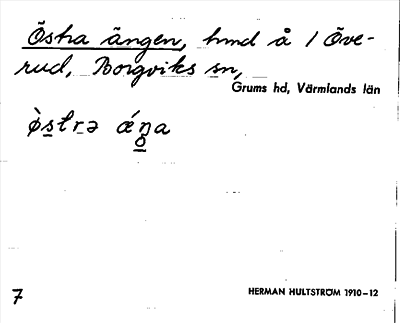 Östra ängen, hmd å 1 Öve-
rud, Borgviks sn,
Grums hd, Värmlands län
7
HERMAN HULTSTRÖM 1910-12